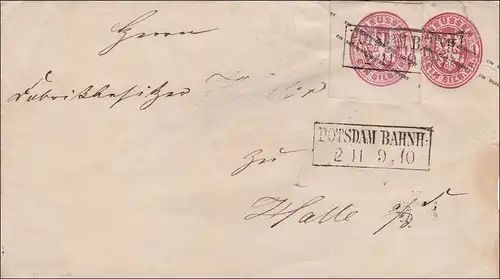 PREUSSEN PREUSSEN
EIN SILB. GR. EIN SILB. GR.
POTSDAM BAHNH.
2 11
Herrn
Fabrikbesitzer
POTSDAM BAHNH.
2 11 9.10
zu
Halle a/S.